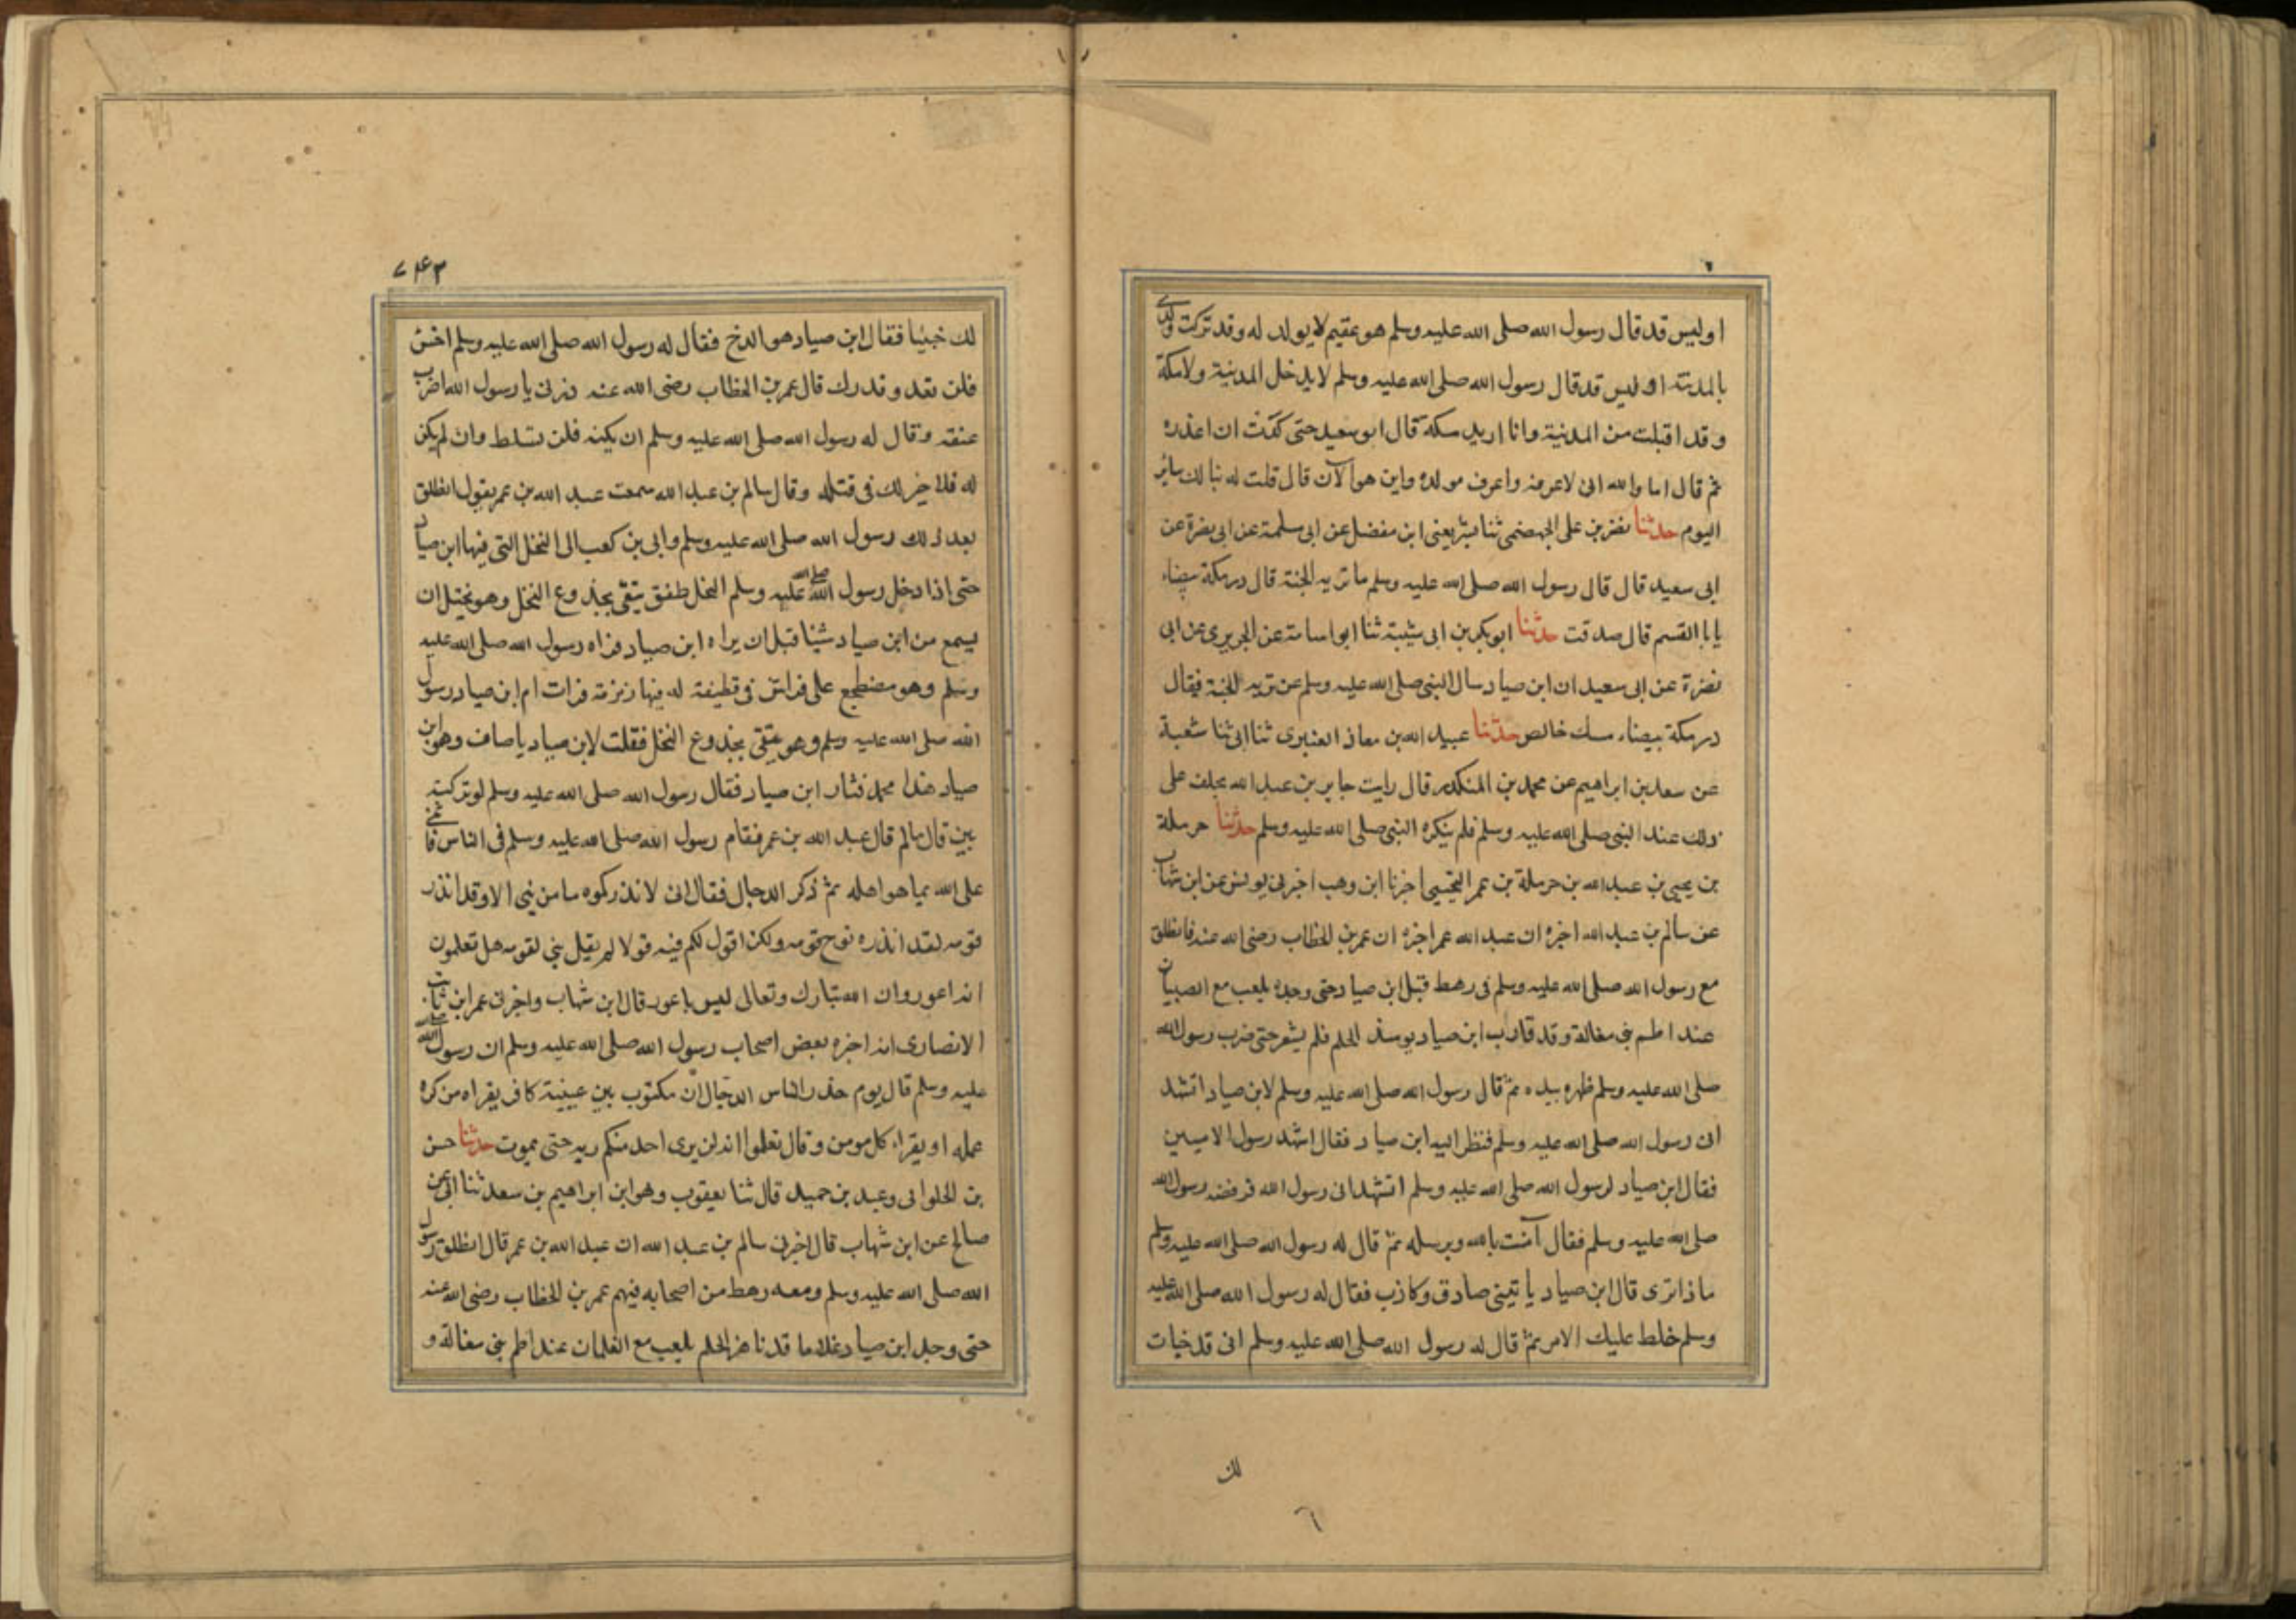 اوليس قد قال رسول الله صلى الله عليه وسلم هو عقيم لا يولد له وقد تركت ولدى
بالمدينة اوليس قد قال رسول الله صلى الله عليه وسلم لا يدخل المدينة ولا مكة
وقد اقبلت من المدينة وانا اريد مكة قال ابو سعيد حتى كدت ان اعذره
ثم قال اما والله انى لاعرفه واعرف مولده واين هو الآن قال قلت له تبا لك سائر
اليوم حدثنا نضر بن على الجهضمى ثنا بشر يعنى ابن مفضل عن ابى سلمة عن ابى نضرة عن
ابى سعيد قال قال رسول الله صلى الله عليه وسلم ما تربه الجنة قال درمكة بيضاء
يابا القسم قال صدقت حدثنا ابو بكر بن ابى شيبة ثنا ابو اسامة عن الجريرى عن ابى
نضرة عن ابى سعيد ان ابن صياد سال النبى صلى الله عليه وسلم عن تربه الجنة فقال
درمكة بيضاء مسك خالص حدثنا عبيد الله بن معاذ العنبرى ثنا ابى ثنا شعبة
عن سعد بن ابراهيم عن محمد بن المنكدر قال رايت جابر بن عبد الله يحلف على
ذلك عند النبى صلى الله عليه وسلم فلم ينكره النبى صلى الله عليه وسلم حدثنا حرملة
بن يحيى بن عبد الله بن حرملة بن عمر التجيبى اخبرنا ابن وهب اخبرنى يونس عن ابن شهاب
عن سالم بن عبد الله اخبره ان عبد الله عمر اخبره ان عمر بن الخطاب رضى الله عنه فانطلق
مع رسول الله صلى الله عليه وسلم فى رهط قبل ابن صياد حتى وجده يلعب مع الصبيان
عند اطم بنى مغالة وقد قارب ابن صياد يومئذ الحلم فلم يشعر حتى ضرب رسول الله
صلى الله عليه وسلم ظهره بيده ثم قال رسول الله صلى الله عليه وسلم لابن صياد اتشهد
انى رسول الله صلى الله عليه وسلم فنظر اليه ابن صياد فقال اشهد رسول الاميين
فقال ابن صياد لرسول الله صلى الله عليه وسلم اتشهد انى رسول الله فرفضه رسول الله
صلى الله عليه وسلم فقال آمنت بالله وبرسله ثم قال له رسول الله صلى الله عليه وسلم
ماذا ترى قال ابن صياد ياتينى صادق وكاذب فقال له رسول الله صلى الله عليه
وسلم خلط عليك الامر ثم قال له رسول الله صلى الله عليه وسلم انى قد خبات
لك
٧٤٣
لك خبيئا فقال ابن صياد هو الدخ فقال له رسول الله صلى الله عليه وسلم اخس
فلن تعد وقدرك قال عمر بن الخطاب رضى الله عنه ذرنى يا رسول الله اضرب
عنقه وقال له رسول الله صلى الله عليه وسلم ان يكنه فلن تسلط وان لم يكن
له فلا خير لك فى قتله وقال سالم بن عبد الله سمعت عبد الله بن عمر يقول انطلق
بعد ذلك رسول الله صلى الله عليه وسلم وابى بن كعب الى النخل التى فيها ابن صياد
حتى اذا دخل رسول الله صلى الله عليه وسلم النخل طفق يتقى بجذوع النخل وهو يختل ان
يسمع من ابن صياد شيئا قبل ان يراه ابن صياد فراه رسول الله صلى الله عليه
وسلم وهو مضطجع على فراش فى قطيفة له فيها زمزمة فرات ام ابن صياد رسول
الله صلى الله عليه وسلم وهو يتقى بجذوع النخل فقلت لابن صياد يا صاف وهو ابن
صياد هذا محمد فثار ابن صياد فقال رسول الله صلى الله عليه وسلم لو تركته
بين قال سالم قال عبد الله بن عمر فقام رسول الله صلى الله عليه وسلم فى الناس فاثنى
على الله بما هو اهله ثم ذكر الدجال فقال انى لانذركموه ما من نبى الا وقد انذر
قومه لقد انذره نوح قومه ولكن اقول لكم فيه قولا لم يقل بنى لقومه هل تعلمون
انه اعور وان الله تبارك وتعالى ليس باعور قال ابن شهاب واخبرنى عمر ابن ثابت
الانصارى انه اخبره بعض اصحاب رسول الله صلى الله عليه وسلم ان رسول الله صلى الله
عليه وسلم قال يوم حذر الناس الدجال ان مكتوب بين عينيه كافر يقراه من كره
عمله او يقراه كل مومن وقال تعلموا انه لن يرى احد منكم ربه حتى يموت حدثنا حسن
بن الحلوانى وعبد بن حميد قال ثنا يعقوب وهو ابن ابراهيم بن سعد ثنا ابى عن
صالح عن ابن شهاب قال اخبرنى سالم بن عبد الله ان عبد الله بن عمر قال انطلق رسول
الله صلى الله عليه وسلم ومعه رهط من اصحابه فيهم عمر بن الخطاب رضى الله عنه
حتى وجد ابن صياد غلاما قد ناهز الحلم يلعب مع الغلمان عند اطم بنى مغالة و